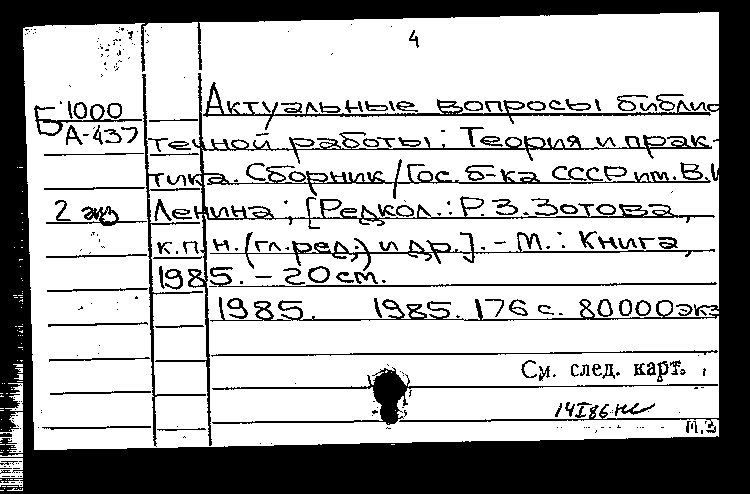 4
Б 1000
А-437
2 экз
Актуальные вопросы библио
течной работы: Теория и прак-
тика. Сборник/Гос. б-ка СССР им. В.И
Ленина; [Редкол.: Р.З. Зотова,
к.п.н. (гл.ред.) и др.]. – М.: Книга,
1985. – 20 см.
1985. 1985. 176 с. 80000 экз
См. след. карт.
14I86
М.З